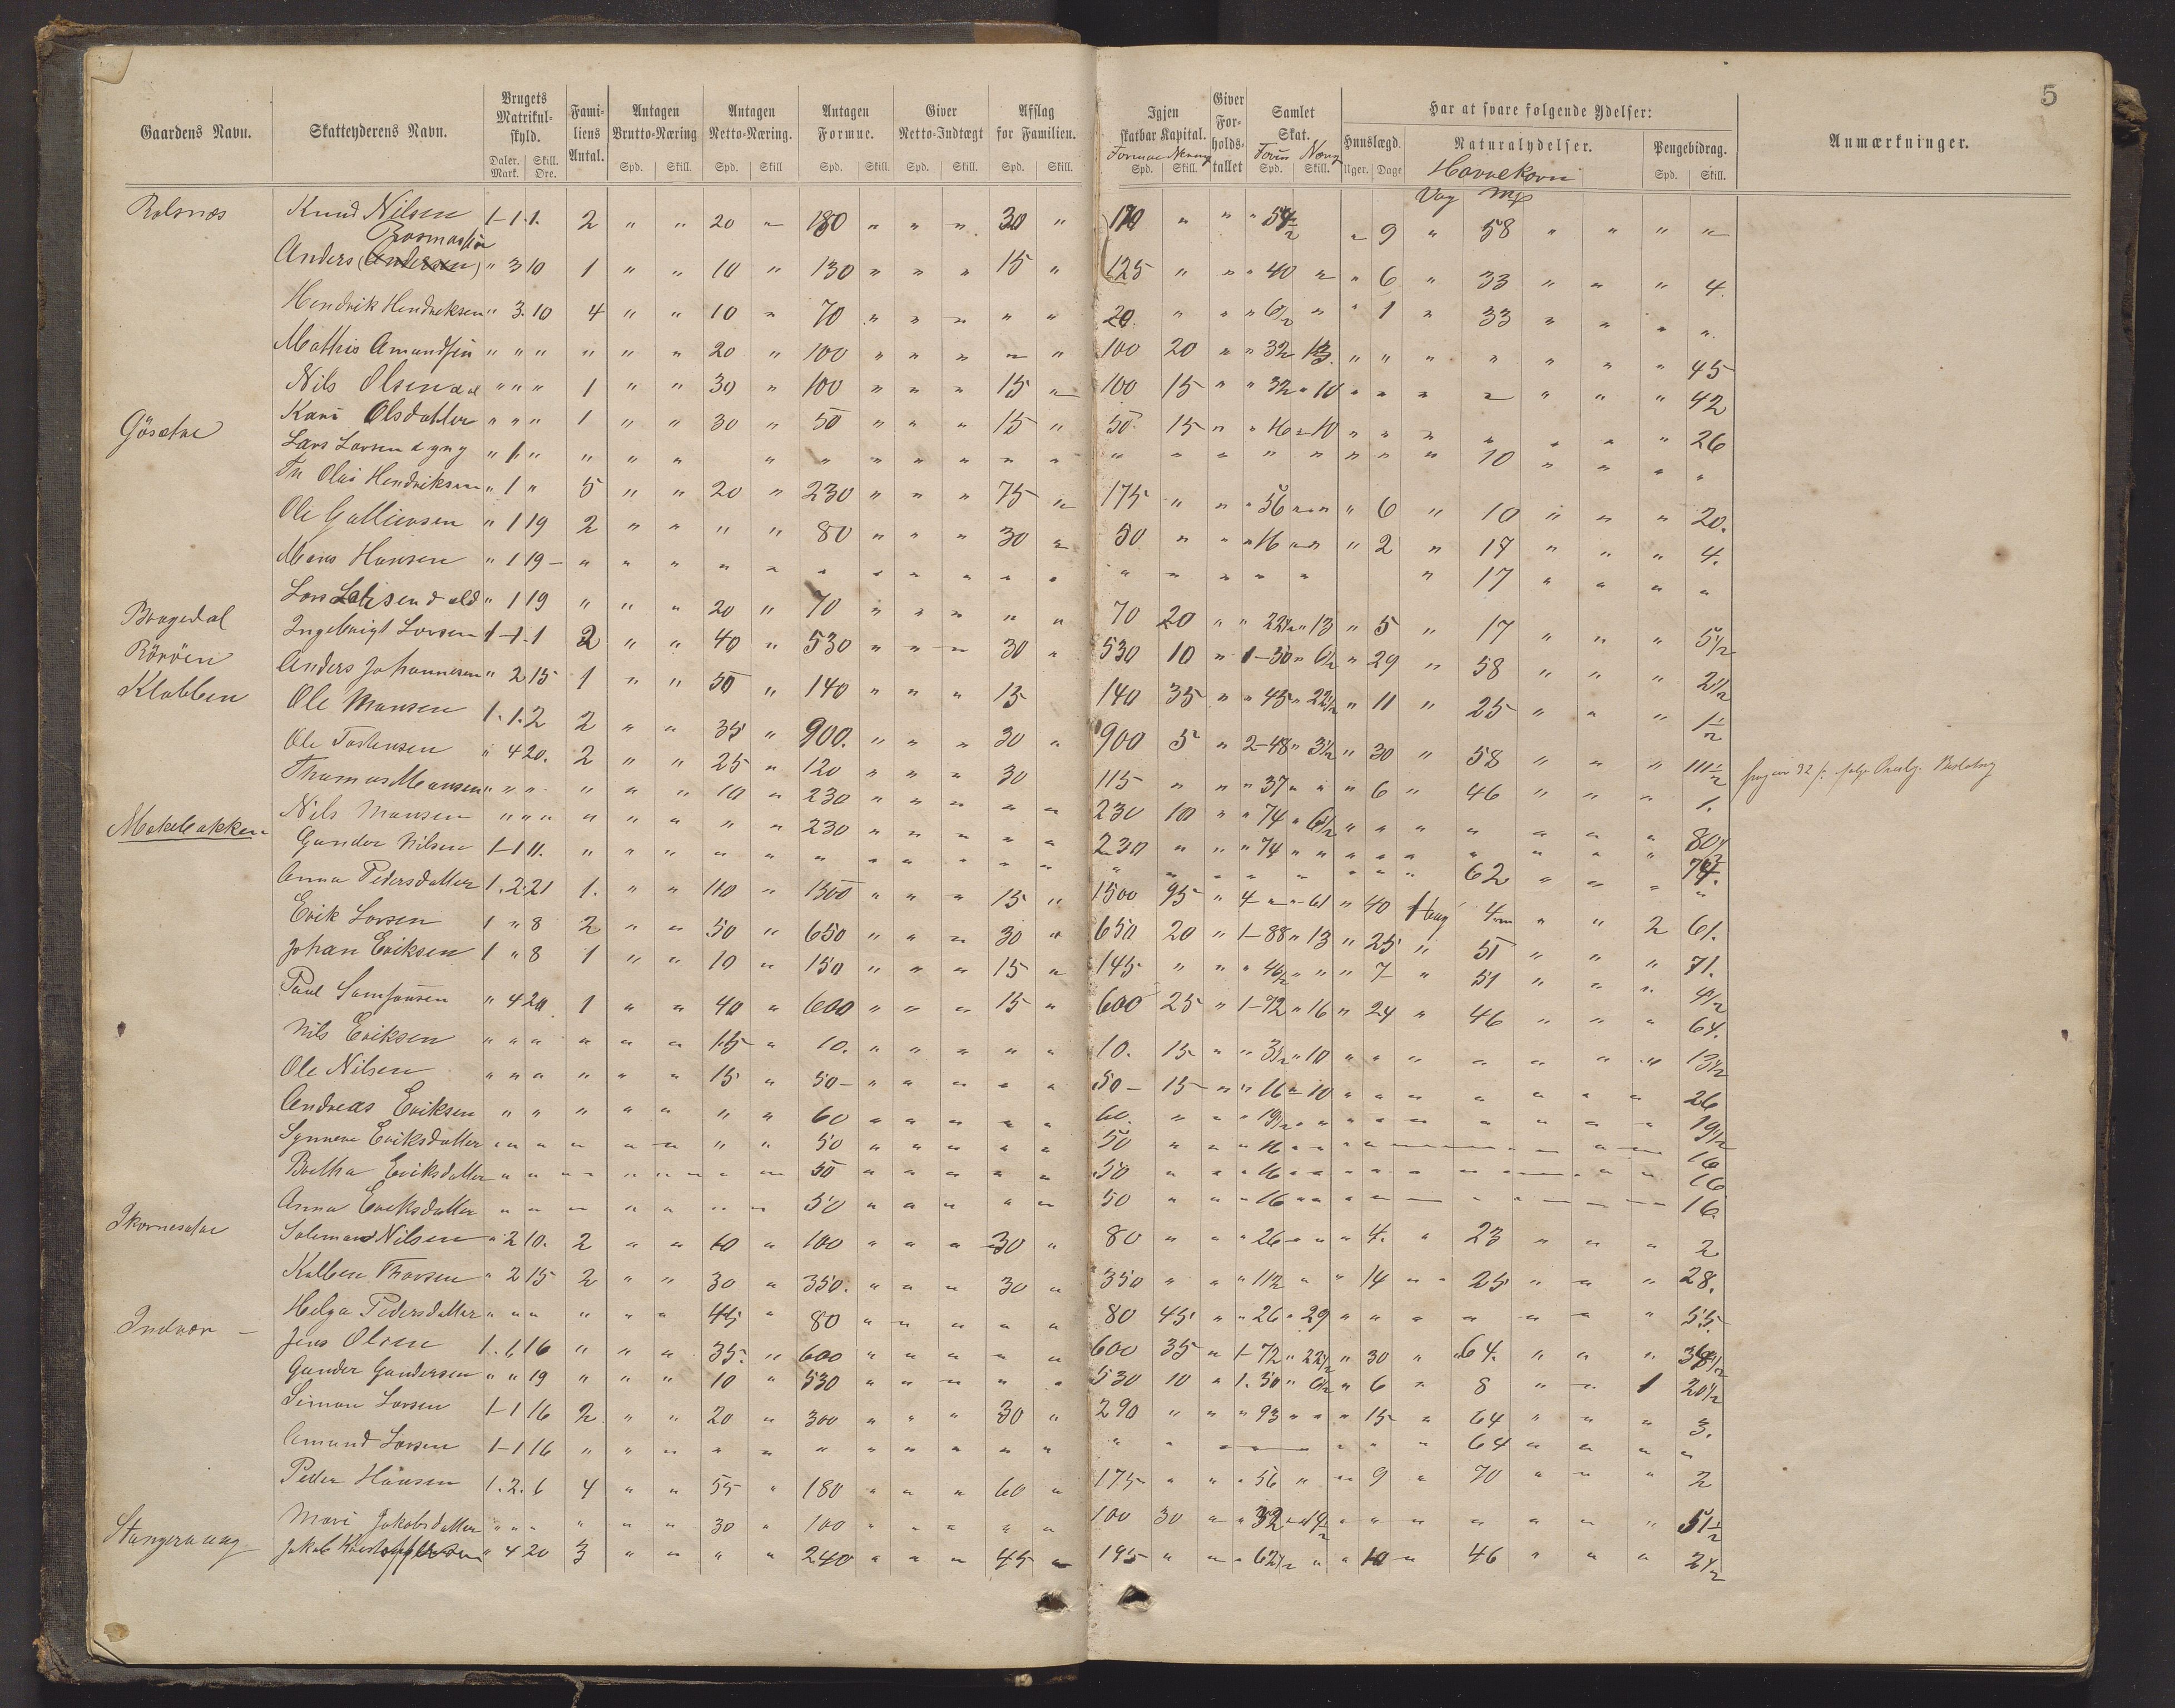 5
Gaardens Navn. Skatteyderens Navn. Brugets Matrikul-skyld. Fami-liens Antal. Antagen Brutto-Næring Antagen Netto-Næring. Antagen Formue. Giver Netto-Indtægt Afslag for Familien. Igjen skatbar Kapital. Giver For-holds-tallet Samlet Skat. Har at svare følgende Ydelser: Anmærkninger.
Huuslægd. Naturalydelser. Pengebidrag.
Daler. Mark. Skill. Øre. Spd. Skill. Spd. Skill Spd. Skill. Spd. Skill. Spd. Skill. Formue Spd. Næring Skill. Form Spd. Næring Skill. Uger. Dage Havrekorn Spd. Skill.
Vog Mp
Rolsnæs Knud Nilsen 1-1.1. 2 " " 20 " 180 " " " " 30 " 170 " " " 54½ " 9 " 58 " " " "
Rasmussen
Anders (Andersen) " 3 10 1 " " 10 " 130 " " " " 15 " 125 " " " 40 " " 6 " 33 " " " 4.
Hendrik Hendriksen " 3. 10 4 " " 10 " 70 " " " " " " 20. " " " 6½ " " 1 " 33 " " " "
Mathis Amundsen " " " " " " 20 " 100 " " " " " " 100 20 " " 32 " 13. " " " " " " " 45
Nils Olsen " " " 1 " " 30 " 100 " " " " 15 " 100 15 " " 32 " 10 " " " " " " " 42
Gösætre Kari Olsdatter " " " 1 " " 30 " 50 " " " " 15 " 50 15 " " 16 " 10 " " " " " " " 26
Lars Larsen d yng " 1 " " " " " " " " " " " " " " " " " " " " " 10 " " " "
Tn Olai Hendriksen " 1 " 5 " " 20 " 230 " " " " 75 " 175 " " " 56 " " " 6 " 10 " " " 20.
Ole Gulliensen " 1 19 2 " " " " 80 " " " " 30 " 50 " " " 16 " " " 2 " 17 " " " 4.
Mons Hansen " 1 19 " " " " " " " " " " " " " " " " " " " 17 " " " "
Lars Larsen d eld " 1 19 " " " 20 " 70 " " " " " " 70 20 " " 22½ " 13 " 5 " 17 " " " 5½
Brogedal Ingebrigt Larsen 1-1.1 2 " " 40 " 530 " " " " 30 " 530 10 " 1-50 " 6½ " 29 " 58 " " " 2½
Röröen Anders Johannesen " 2 15 1 " " 50 " 140 " " " " 15 140 35 " " 45 " 22½ " 11 " 25 " " " 1½
Klobben Ole Monsen 1. 1. 2 2 " " 35 " 900. " " " " 30 " 900 5 " 2-48 " 3½ " 30 " 58 " " " 111½
Ole Tostensen " 4 20. 2 " " 25 " 120 " " " " 30 115 " " " 37 " " " 6 " 46 " " " 1.
Thomas Monsen " " " " " " 10 " 230 " " " " " " 230 10 " " 74 " 6½ " " " " " " " 80½
Mokebakken Nils Monsen " " " " " " " " 230 " " " " " " 230 " " " 74 " " " " " " " " " 74.
Gunder Nilsen 1-1 11. " " " " " " " " " " " " " " " " " " " " " 62 " " " "
Anna Pedersdatter 1. 2. 21 1. " " 110 " 1500 " " " " 15 " 1500 95 " 4 " " 61 " 40 1 " " 2 61.
Erik Larsen 1 " 8 2 " " 50 " 650 " " " " 30 " 650 20 " 1-88 " 13 " 25 " 51 " " " 71.
Johan Eriksen 1 " 8 1 " " 10 " 150 " " " " 15 " 145 " " " 46½ " " " 7 " 51 " " " 4½
Paul Samsonsen " 4 20. 1 " " 40 " 600 " " " " 15 " 600 25 " 1-72 " 16 " 24 " 46 " " " 64.
Nils Eriksen " " " " " " 15 " 10. " " " " " " 10. 15 " " 3½ " 10 " " " " " " " 13½
Ole Nilsen " " " " " " 15 " 50 " " " " " " 50 15 " " 16 " 10 " " " " " " " 26
Andreas Eriksen " " " " " " " " 60 " " " " " " 60. " " " 19½ " " " " " " " " " 19½
Synneve Eriksdatter " " " " " " " " 50 " " " " " " 50 " " " 16 " " " " " " " " " 16
Bertha Eriksdatter " " " " " " " " 50 " " " " " " 50 " " " 16 " " " " " " " " " 16
Anna Eriksdatter " " " " " " " " 50 " " " " " " 50 " " " 16 " " " " " " " " " 16.
Skornesætre Saleman Nilsen " 2 10. 2 " " 10 " 100 " " " " 30 " 80 " " " 26 " " " 4. " 23 " " " 2
Kolben Thorsen " 2 15 2 " " 30 " 350. " " " " 30 " 350 " " " 112 " " " 14 " 25 " " " 28.
Helga Pedersdatter " " " " " " 45 " 80 " " " " " " 80 45 " " 26 " 29 " " " " " " " 55.
Indvær Jens Olsen 1. 1. 16 " " " 35. " 600 " " " " " " 600 35 " 1-72 " 22½ " 30 " 64. " " "
Gunder Gundersen " " 19 " " " 10 " 530 " " " " " " 530 10 " 1. 50 " 6½ " 6 " 8 " " 1 20½
Simon Larsen 1-1 16 2. " " 20 " 300 " " " " 30 " 290 " " " 93 " " " 15 " 64 " " " 3.
Amund Larsen 1-1 16 " " " " " " " " " " " " " " " 64 " " " "
Peder Hansen 1. 2. 6 4 " " 55 " 180 " " " " 60 " 175 " " " 56 " " " 9 " 70 " " " 2
Mari Jakobsdatter " " " " " " 30 " 100 " " " " " " 100 30 " " 32 " 19½ " " " " " " " 51½
Jakob Kristoffersen " 4 20 3 " " " " 240 " " " " 45 " 195 " " " 62½ " " " 10 " 46 " " " 2½